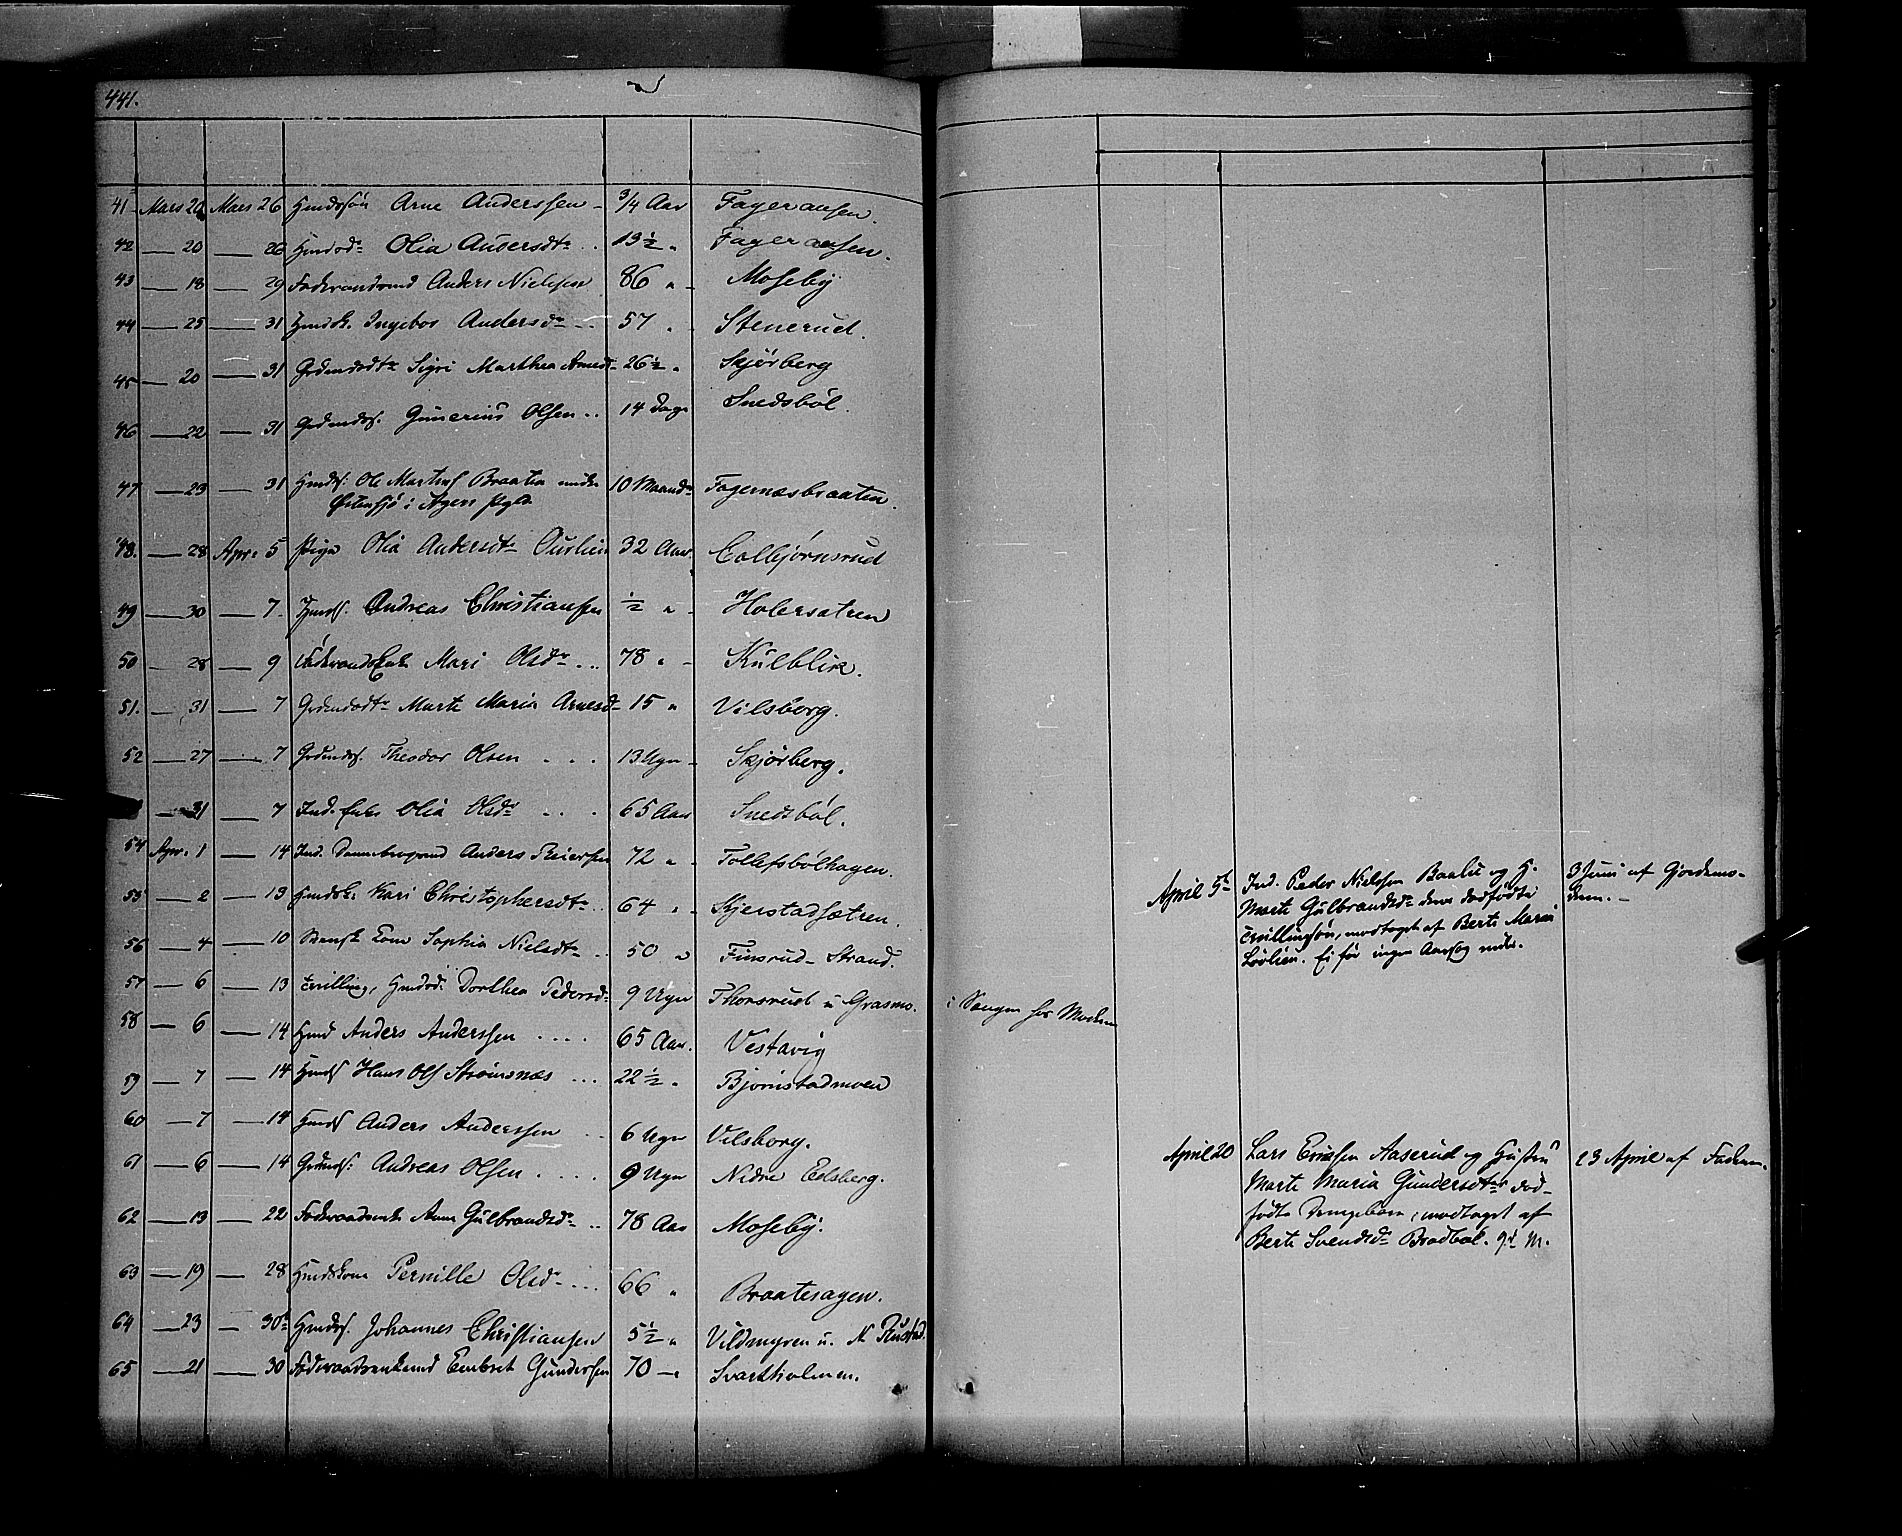 441.
41 Mars 20 Mars 26 Huusmdssøn Arne Anderssen - 3/4 Aar Fageraasen.
42 — 20 — 26 Hmdsdr Olia Andersdtr .. 13½ „ Fageraasen.
43 — 18 — 29 Føderaadsmd Anders Nielssen 86 „ - Moseby
44 — 25 — 31 Hmdsk. Ingebor Andersdr - .. 57 „ Stenerud.
45 — 20 — 31 Grdmdsdtr Sigri Marthea Arnesdr 26½ „ Skjørberg
46 — 22 — 31 Grdmdss. Gunerius Olsen .. 14 Dage Snedsböl.
47 — 23 — 31 Hmdss: Ole Martins Braaten under 10 Maander Fagernæsbraaten.
Østensjø i Agers Pgld
48. — 28 Apr. 5 Pige Olia Andersdtr Ourlien 32 Aar. Colbjørnsrud
49 — 30 — 7. Hmdss. Andreas Christiansen ½ „ - Holersætren
50 — 28 — 9 Føderaads Enke Mari Olsdr - .. 78 „ - Kulblik.
51. — 31 — 7 Grdmdsdtr Marte Maria Arnesdr 15 „ Vilsborg.
52 — 27 — 7 Grdmdss. Theodor Olsen . . . 13 Ugr - Skjørberg.
— 31 — 7 Ind. Enke Olia Olsdr . . . 65 Aar Snedsböl.
54 Apr. 1 — 14 Ind. Dannebrogsmd Anders Reiersen 72 „ - Tollefsbölhagen.
55 — 2 — 13 Hmdsk. Kari Christophersdtr .. 64 „ - Skjerstadsætren.
56 — 4 — 10 Svensk Kone Sophia Nielsdtr .. 50 „ Finsrud - Strand.
57 — 6 — 13 Tvilling, Hmdsd: Dorthea Pedersdr 9 Ugr Thonsrud u Grasmo. i Sengen hos Moderen
58 — 6 — 14 Hmd Anders Anderssen .... 65 Aar. Vestavig
59 — 7 — 14 Hmdss Hans Ols Strömsnæs ... 22½ „ Bjørnstadmoen
60 — 7 — 14 Hmdss Anders Anderssen .. 6 Ugr Vilsborg.
61 — 6 — 14 Grdmdss: Andreas Olsen .... 9 Ugr Nedre Edsberg.
62 — 13 — 22 Føderaadsenke Anne Gulbrandsdr .. 78 Aar Moseby.
63 — 19 — 28 Hmdskone Pernille Olsdr ... 66 „ Braatesagen.
64 — 23 — 30 Hmdss. Johannes Christiansen 5½ „ Vildmyren u. N Rustad.
65 — 21 — 30 Føderaadsenkemd Embret Gundersen 70 — „ Svartholmen.
April 5te Ind. Peder Nielssen Baalie og H.
Marte Gulbrandsdr deres dødfødte
Tvillingsøn, modtaget af Berte Maria
Lövlien. Ei før ingen Aarsag vides.
3 Juni af Gjordemo-
deren. -
April 20 Lars Ericksen Aaserud og Hustru
Marte Maria Gundersdtr død-
fødte Drengebarn, modtaget af
Berte Svendsdr Bradböl. 9de M.
23 April af Faderen.